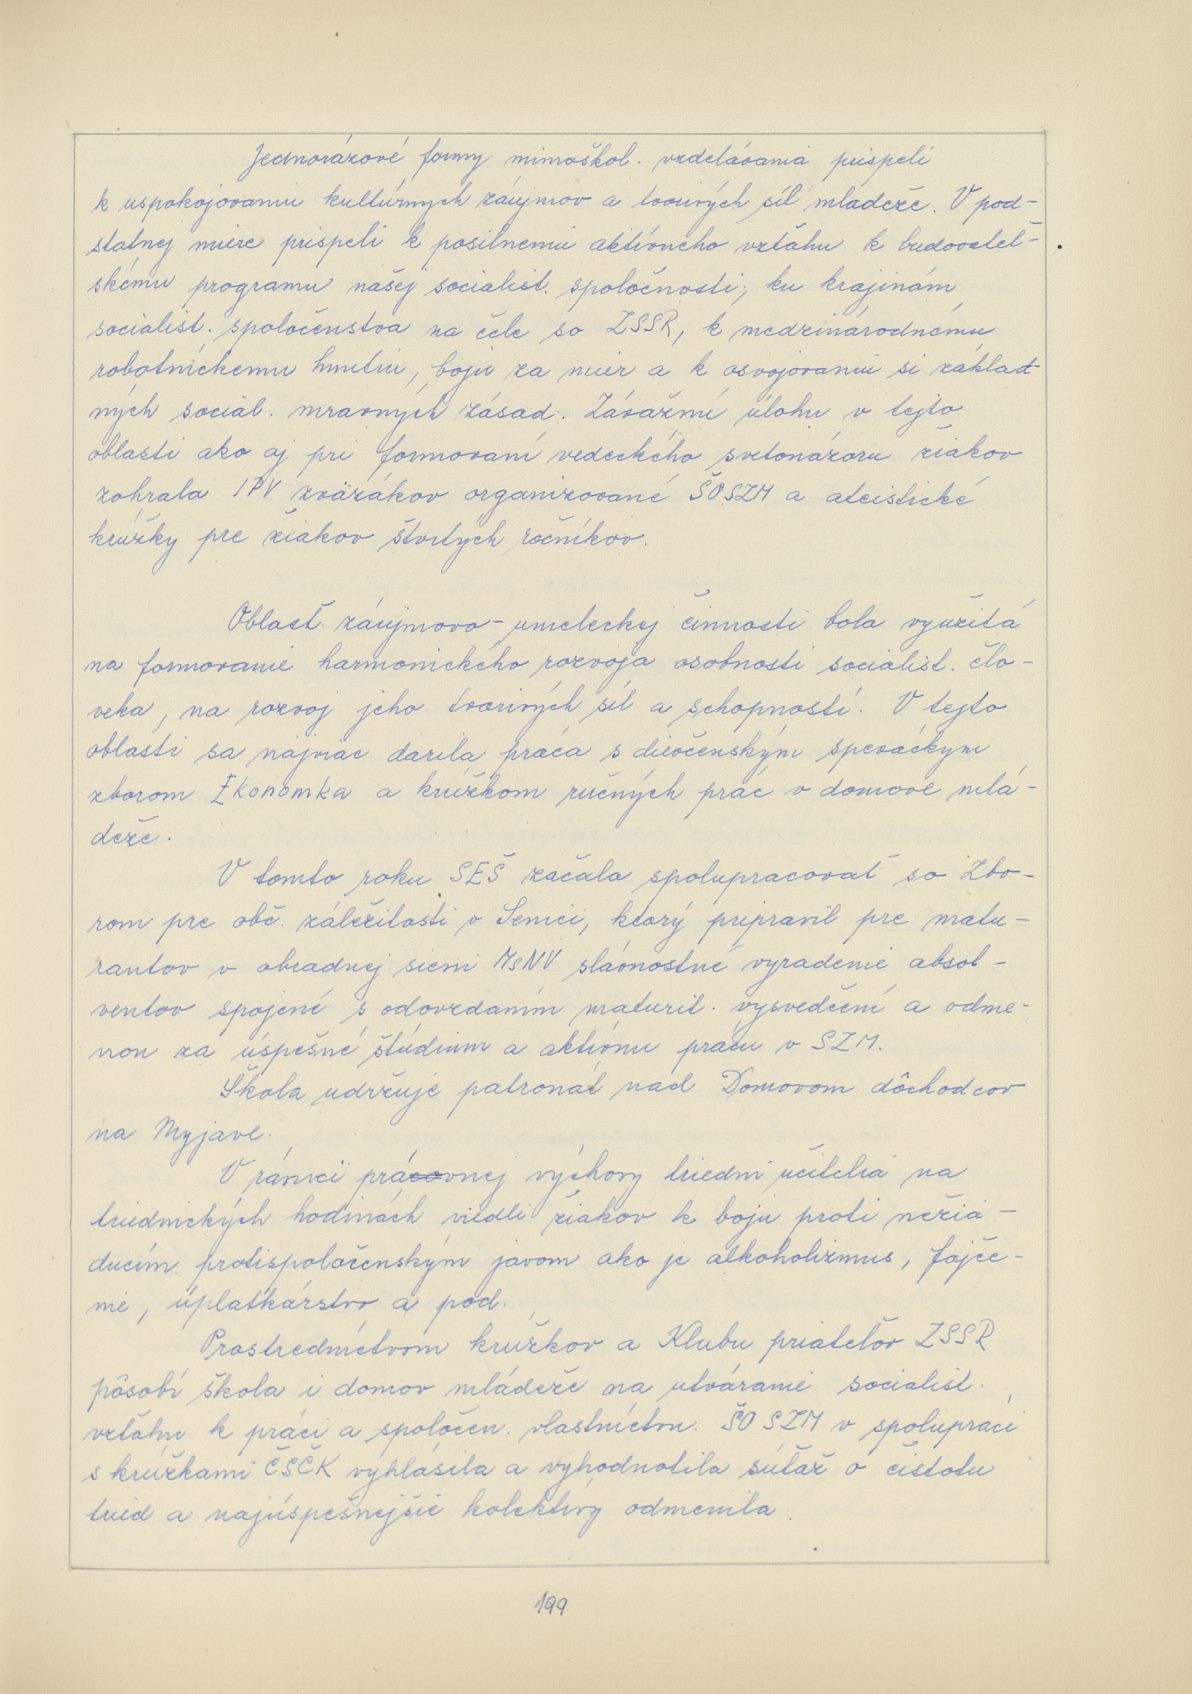 Jednorázové formy mimoškol. vzdelávania prispeli
k uspokojovaniu kultúrnych záujmov a tvorivých síl mládeže. V pod-
statnej miere prispeli k posilneniu aktívneho vzťahu k budovateľ-
skému programu našej socialist. spoločnosti, ku krajinám
socialist. spoločenstva na čele so ZSSR, k medzinárodnému
robotníckemu hnutiu, boju za mier a k osvojovaniu si základ-
ných sociál. mravných zásad. Závažnú úlohu v tejto
oblasti ako aj pri formovaní vedeckého svetonázoru žiakov
zohrala IPV zväzákov organizované ŠOSZM a ateistické
krúžky pre žiakov štvrtých ročníkov.
Oblasť záujmovo-umeleckej činnosti bola využitá
na formovanie harmonického rozvoja osobnosti socialist. člo-
veka, na rozvoj jeho tvorivých síl a schopností. V tejto
oblasti sa najviac darila práca s dievčenským speváckym
zborom Ekonomka a krúžkom ručných prác v domove mlá-
deže.
V tomto roku SEŠ začala spolupracovať so Zbo-
rom pre obč. záležitosti v Senici, ktorý pripravil pre matu-
rantov v obradnej sieni MsNV slávnostné vyradenie absol-
ventov spojené s odovzdaním maturit. vysvedčení a odme-
non za úspešné štúdium a aktívnu prácu v SZM.
Škola udržuje patronát nad Domovom dôchodcov
na Myjave.
V rámci prácovnej výchovy triedni učitelia na
triednických hodinách viedli žiakov k boju proti nežia-
ducim protispoločenským javom ako je alkoholizmus, fajče-
nie, úplatkárstvo a pod.
Prostredníctvom krúžkov a Klubu priateľov ZSSR
pôsobí škola i domov mládeže na utváranie socialist.
vzťahu k práci a spoločen. vlastníctvu. ŠO SZM v spolupráci
s krúžkami ČSČK vyhlásila a vyhodnotila súťaž o čistotu
tried a najúspešnejšie kolektívy odmenila.
199